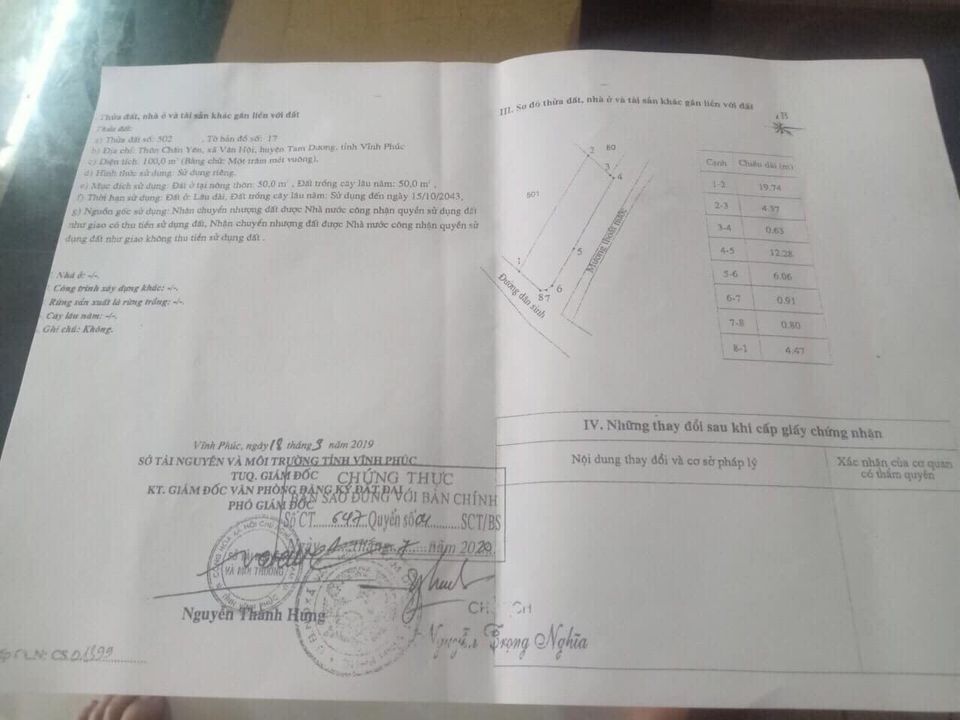 Thửa đất, nhà ở và tài sản khác gắn liền với đất
Thửa đất:
a) Thửa đất số: 502 , Tờ bản đồ số: 17
b) Địa chỉ: Thôn Chấn Yên, xã Vân Hội, huyện Tam Dương, tỉnh Vĩnh Phúc
c) Diện tích: 100,0 m² (Bằng chữ: Một trăm mét vuông),
d) Hình thức sử dụng: Sử dụng riêng,
e) Mục đích sử dụng: Đất ở tại nông thôn: 50,0 m², Đất trồng cây lâu năm: 50,0 m²,
f) Thời hạn sử dụng: Đất ở: Lâu dài, Đất trồng cây lâu năm: Sử dụng đến ngày 15/10/2043,
g) Nguồn gốc sử dụng: Nhận chuyển nhượng đất được Nhà nước công nhận quyền sử dụng đất
như giao có thu tiền sử dụng đất, Nhận chuyển nhượng đất được Nhà nước công nhận quyền sử
dụng đất như giao không thu tiền sử dụng đất .
Nhà ở: -/-.
Công trình xây dựng khác: -/-.
Rừng sản xuất là rừng trồng: -/-.
Cây lâu năm: -/-.
Ghi chú: Không.
Vĩnh Phúc, ngày 18 tháng 3 năm 2019
SỞ TÀI NGUYÊN VÀ MÔI TRƯỜNG TỈNH VĨNH PHÚC
TUQ. GIÁM ĐỐC
KT. GIÁM ĐỐC VĂN PHÒNG ĐĂNG KÝ ĐẤT ĐAI
PHÓ GIÁM ĐỐC
CHỨNG THỰC
BẢN SAO ĐÚNG VỚI BẢN CHÍNH
Số CT 647 Quyển số 01 SCT/BS
Ngày tháng 7 năm 2020
VÀ MÔI TRƯỜNG
Nguyễn Thanh Hưng
CHỦ TỊCH
Nguyễn Trọng Nghĩa
III. Sơ đồ thửa đất, nhà ở và tài sản khác gắn liền với đất
B
80
2
3
4
501
5
1
6
87
Mương thoát nước
Đường dân sinh
Cạnh Chiều dài (m)
1-2 19.74
2-3 4.57
3-4 0.63
4-5 12.28
5-6 6.06
6-7 0.91
7-8 0.80
8-1 4.47
IV. Những thay đổi sau khi cấp giấy chứng nhận
Nội dung thay đổi và cơ sở pháp lý
Xác nhận của cơ quan
có thẩm quyền